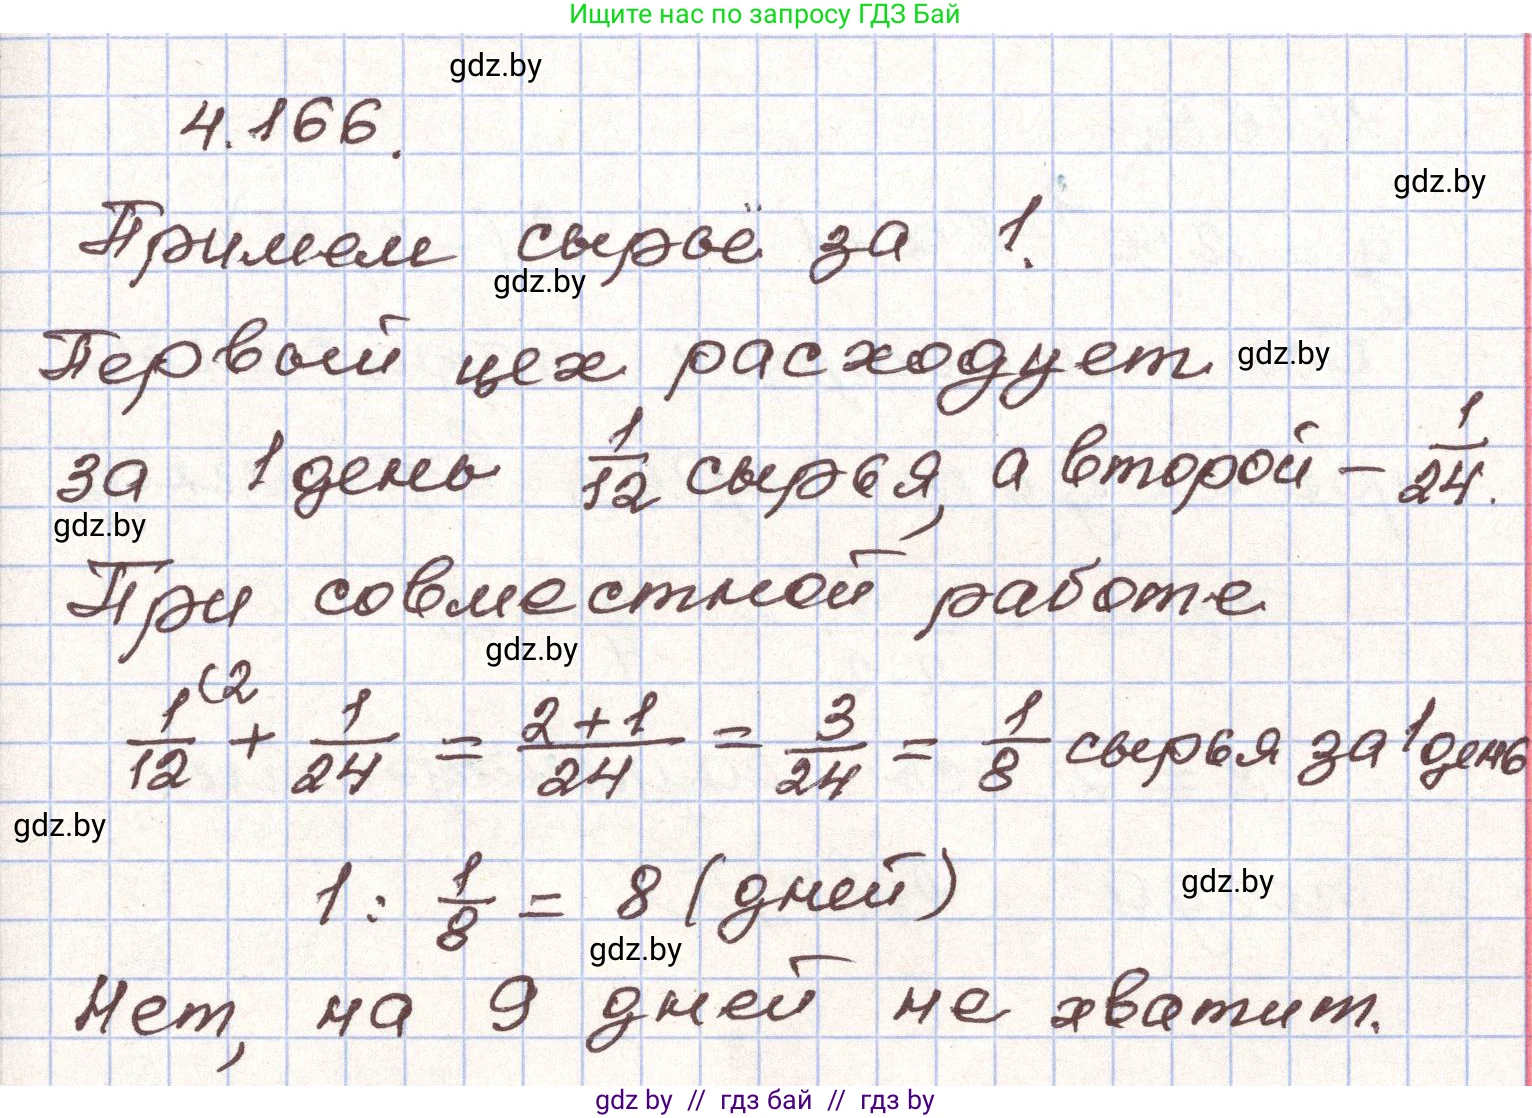 Ищите нас по запросу ГДЗ Бай
gdz.by
4.166.
gdz.by
Примем сырьё за 1.
gdz.by
Первый цех расходует
gdz.by
за 1 день 1/12 сырья, а второй – 1/24.
gdz.by
При совместной работе
gdz.by
1/12 (2 + 1/24 = (2+1)/24 = 3/24 = 1/8 сырья за 1 день
gdz.by
1 : 1/8 = 8 (дней)
gdz.by
gdz.by
Нет, на 9 дней не хватит.
gdz by // гдз бай // гдз by